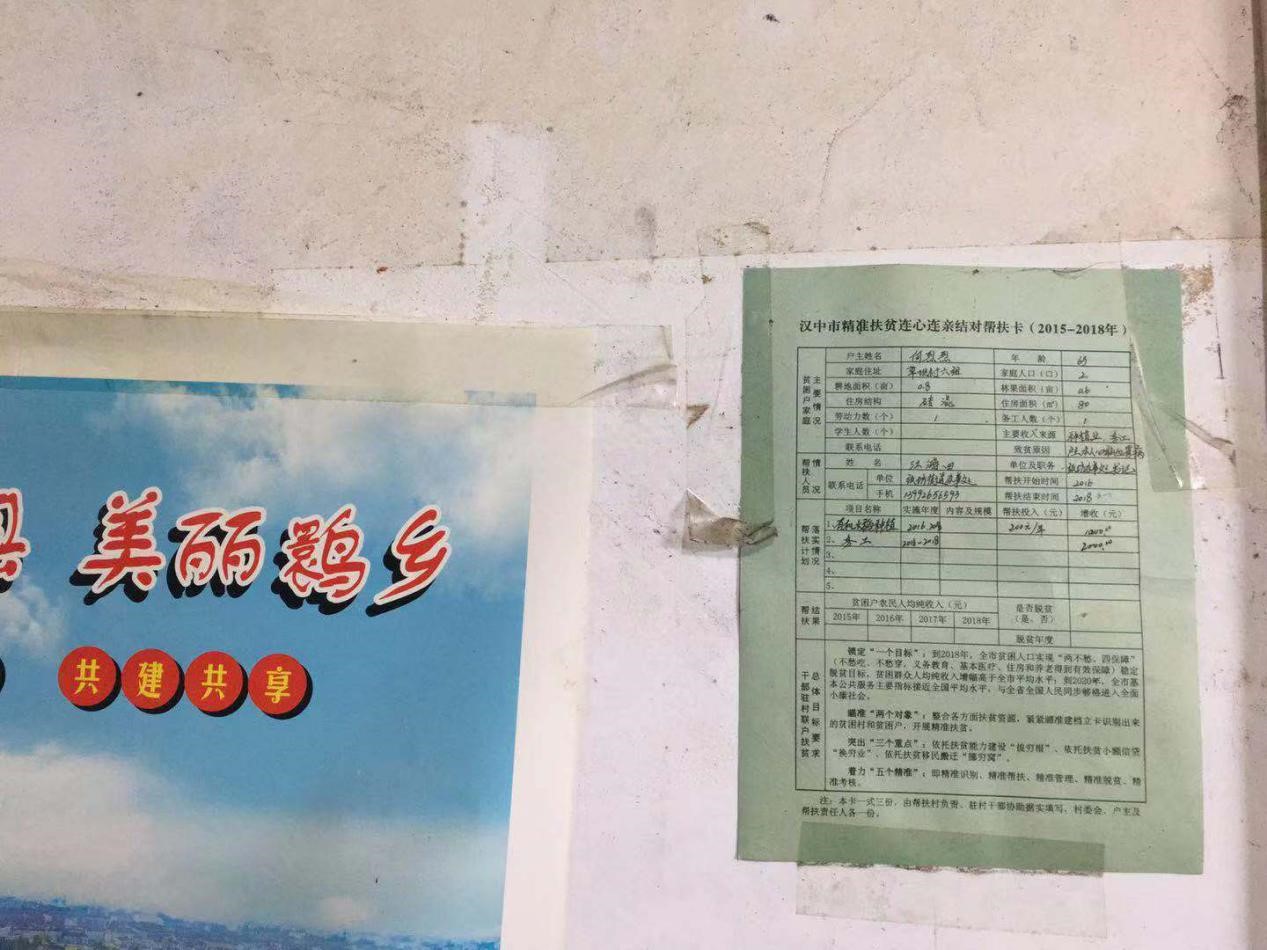 美丽鹮乡
共建共享
汉中市精准扶贫连心连亲结对帮扶卡（2015-2018年）
贫困户家庭主要情况
户主姓名 何烈烈 年龄 65
家庭住址 草坝村六组 家庭人口（口） 2
耕地面积（亩） 0.8 林果面积（亩） 0.6
住房结构 砖混 住房面积（㎡） 80
劳动力数（个） 1 务工人数（个） 1
学生人数（个） 主要收入来源 种植业、务工
联系电话 致贫原因
帮扶人员情况
姓名 单位及职务
联系电话 单位 帮扶开始时间 2016
手机 帮扶结束时间 2018
帮扶计划落实情况
项目名称 实施年度 内容及规模 帮扶投入（元） 增收（元）
1、 水稻种植 2016 200元/年
2、务工 2000.00
3、
4、
5、
帮扶结果
贫困户农民人均纯收入（元） 是否脱贫（是、否）
2015年 2016年 2017年 2018年
脱贫年度
干部驻村联户扶贫总体目标要求
锁定“一个目标”：到2018年，全市贫困人口实现“两不愁、四保障”
（不愁吃、不愁穿，义务教育、基本医疗、住房和养老得到有效保障）稳定
脱贫目标，贫困群众人均纯收入增幅高于全市平均水平；到2020年，全市基
本公共服务主要指标接近全国平均水平，与全省全国人民同步够格进入全面
小康社会。
瞄准“两个对象”：整合各方面扶贫资源，紧紧瞄准建档立卡识别出来
的贫困村和贫困户，开展精准扶贫。
突出“三个重点”：依托扶贫能力建设“拔穷根”、依托扶贫小额信贷
“换穷业”、依托扶贫移民搬迁“挪穷窝”。
着力“五个精准”：即精准识别、精准帮扶、精准管理、精准脱贫、精
准考核。
注：本卡一式三份，由帮扶村负责、驻村干部协助据实填写，村委会、户主及
帮扶责任人各一份。